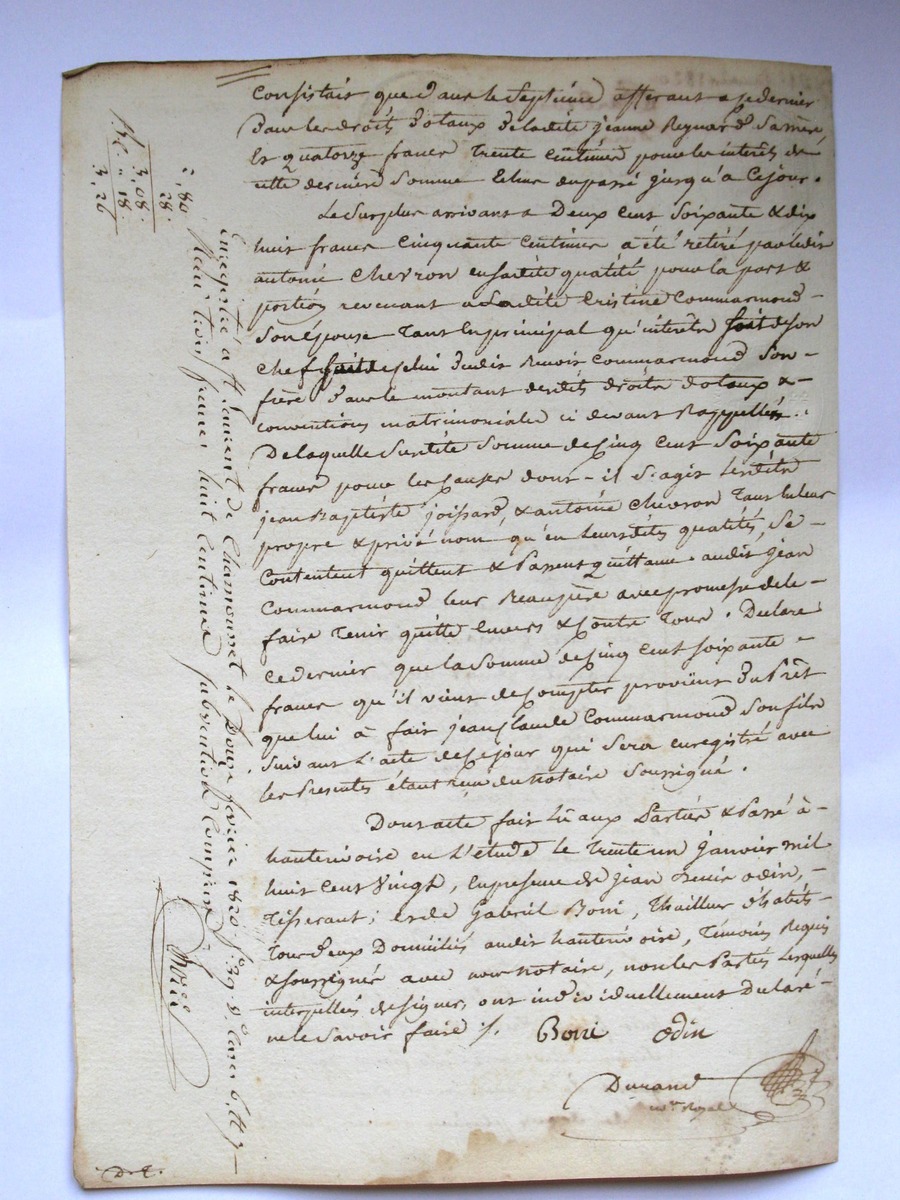 Consistait que dans le Septieme afferant a ce dernier
dans les droits dotaux de ladite jeanne Reynard Sa mere,
Et quatorze francs Trente Centimes pour les interets de
cette derniere Somme Echus du passé jusqu'à Ce jour.
Le Surplus arrivant a Deux cent Soixante & dix
huit francs Cinquante Centimes a été retiré par ledit
antoine Chevron en Sadite qualité pour la part &
portion revenant a Ladite Cristine Commarmond
Son épouse Tant En principal qu'interets Soit de Son
Chef Soit de Celui dudit Benoit Commarmond Son
frere dans le montant desdits droits dotaux &
conventions matrimoniales ci devant Rappellés.
De laquelle Susdite Somme de Cinq Cent Soixante
francs pour les Causes dont il S'agit Lesdits
jean Baptiste joissard, & antoine Chevron Tant En leur
propre & privé nom qu'en Leursdites qualités, Se
Contentent quittent & Passent quittance audit jean
Commarmond leur Beaupère avec promesse de le
faire Tenir quitte Envers & Contre Tous. Declare
Ce dernier que la Somme de Cinq Cent soixante
francs qu'il vient de Compter provient du Prêt
que lui à fait jean Claude Commarmond Son fils
Suivant L'acte de Ce jour qui Sera enregistré avec
les Presentes étant reçu du Notaire Soussigné.
Dont acte fait Lû aux Parties & Passé à
hauterivoire en L'étude le Trente un Janvier mil
huit Cent Vingt, En presence de Jean Denis Odin,
Tisserant, et de Gabriel Boni, Thailleur d'habits
Tous deux Domiciliés audit hauterivoire, Témoins Requis
& Soussignés avec nous Notaire, non les Parties Lesquelles
interpellées de signer, ont individuellement Declaré
ne le Savoir faire ./.
Boni Odin
Durand
no.re Royal
Enregistré à St Laurent de Chamousset le Douze fevrier 1820 f.° 39 v.° Cases 6. et 7
Reçu trois francs huit Centimes Subvention Comprise
2,80
28
3,08
18
3,26
D.t.